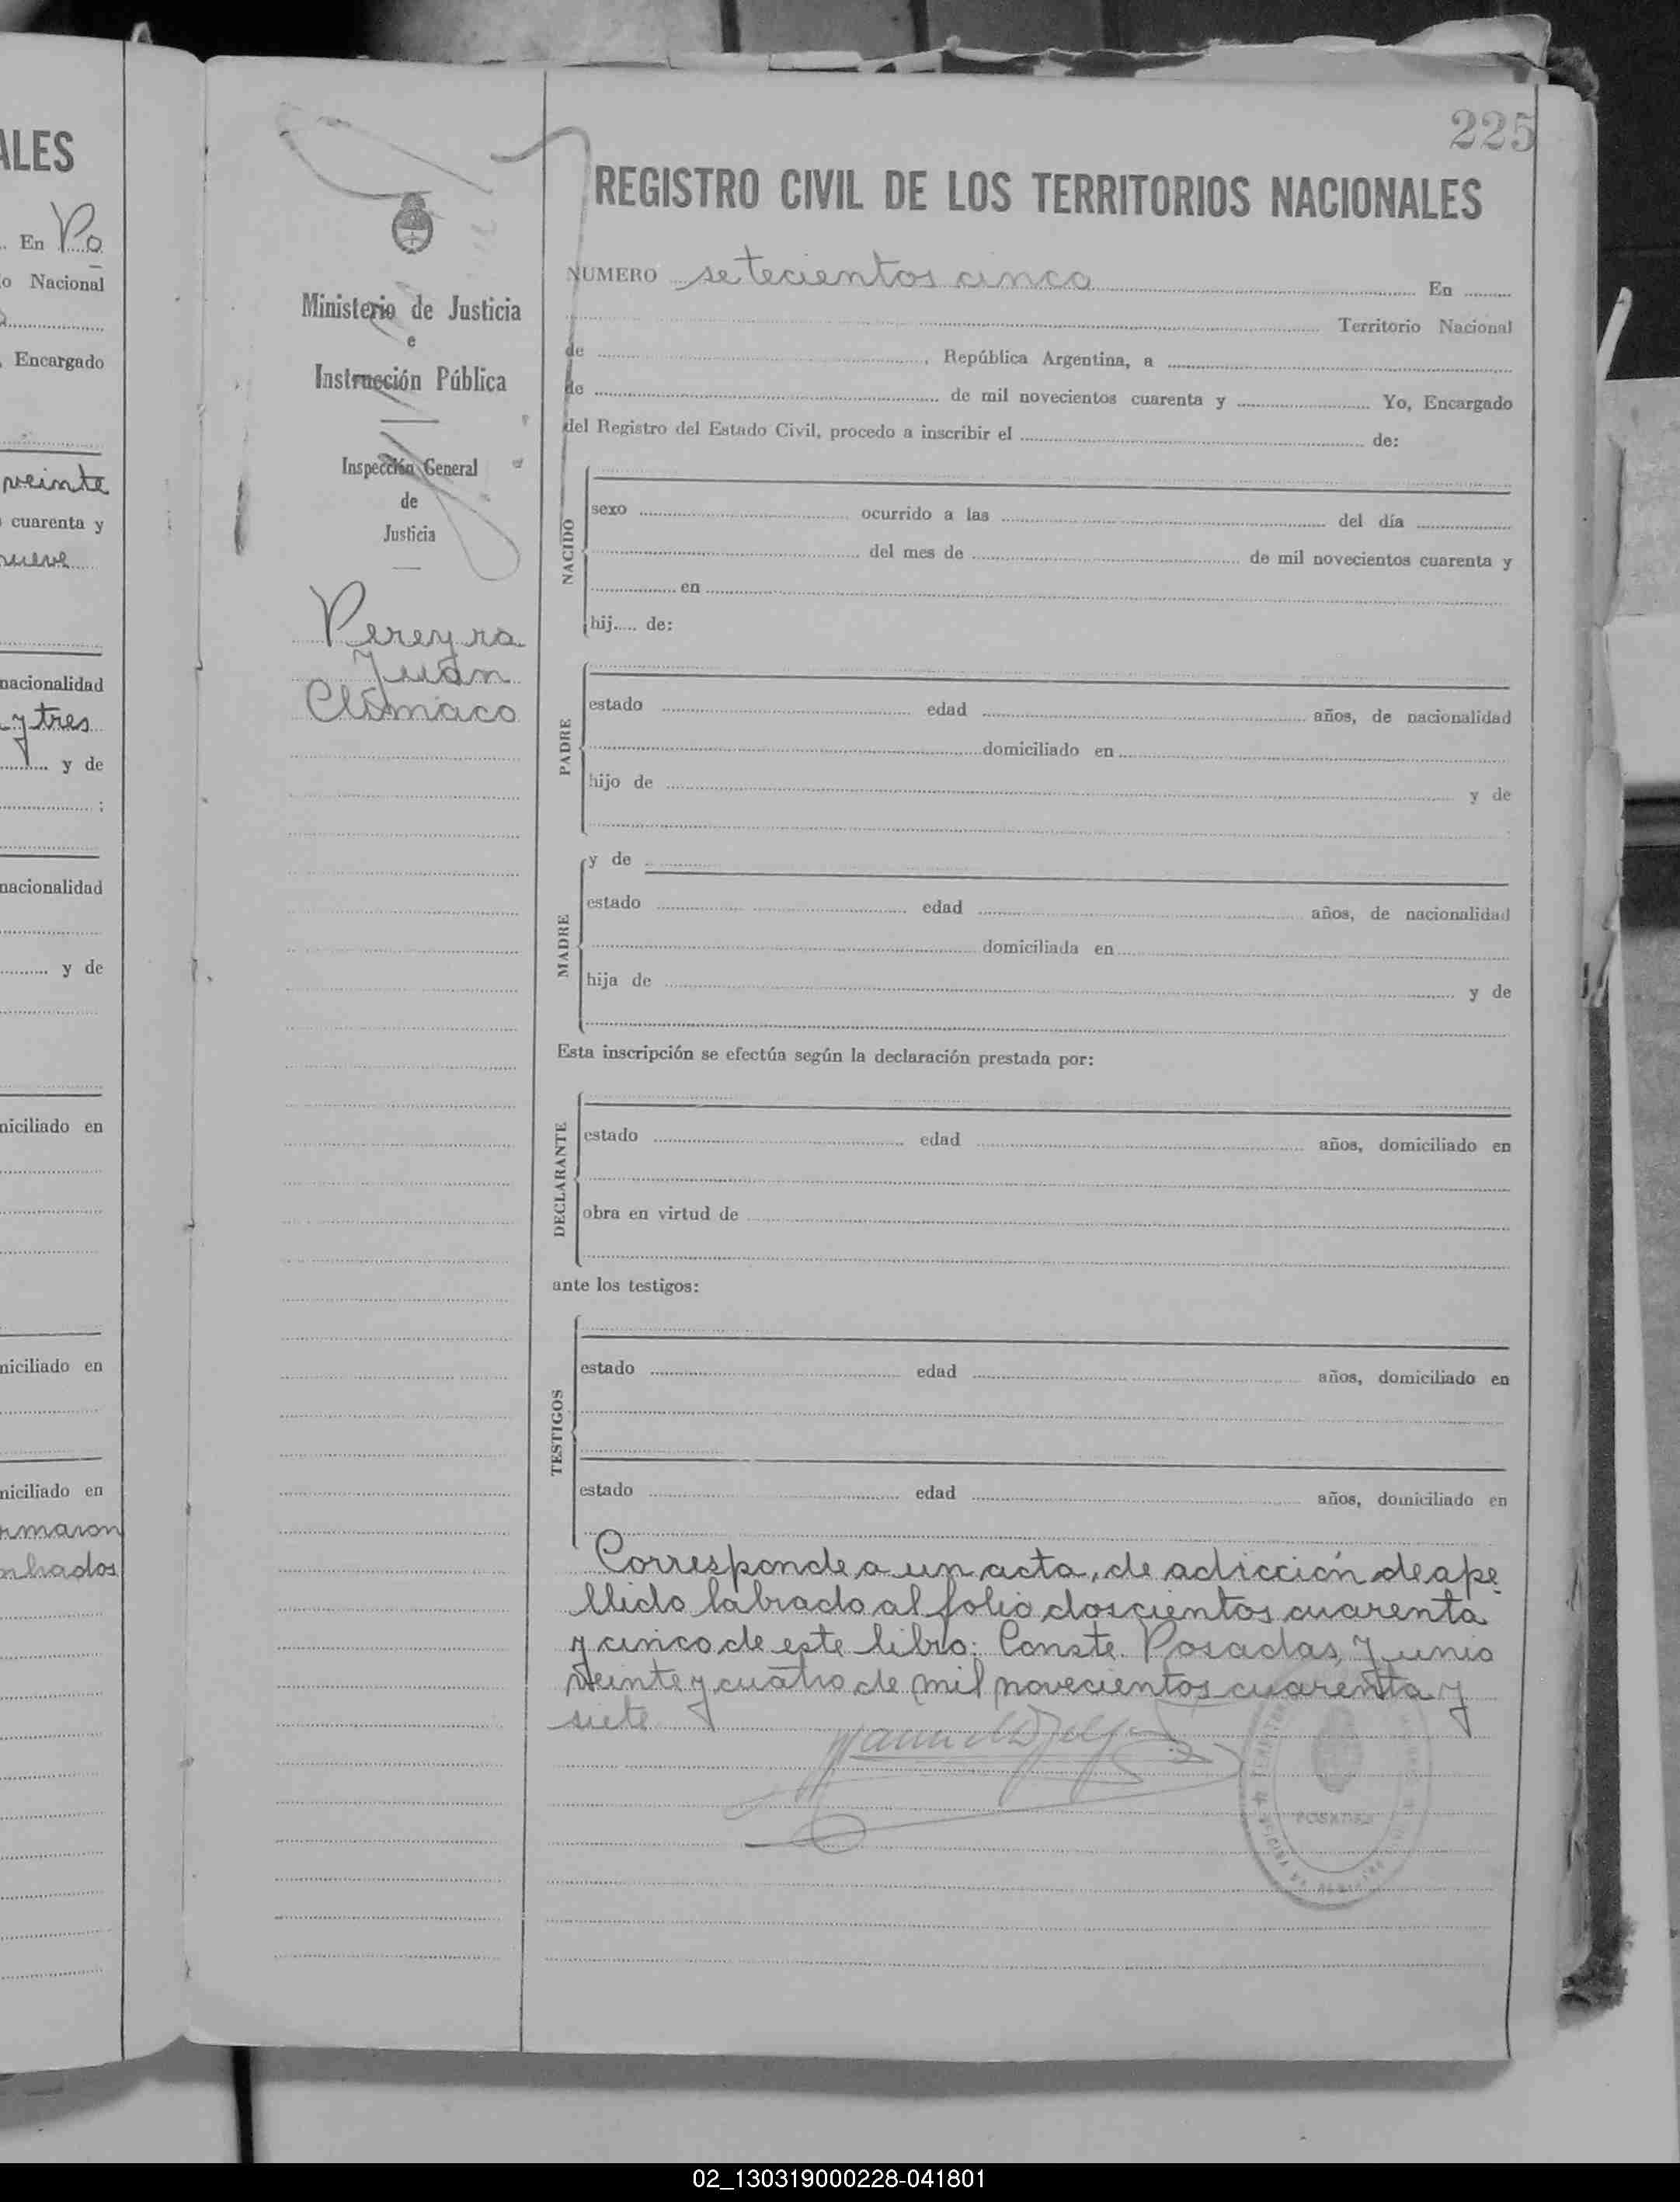 ALES
En Po
o Nacional
, Encargado
veinte
cuarenta y
nueve
nacionalidad
y tres
y de
;
nacionalidad
y de
niciliado en
niciliado en
niciliado en
rmaron
225
Ministerio de Justicia
e
Instrucción Pública
Inspección General
de
Justicia
Pereyra
Juan
Clímaco
REGISTRO CIVIL DE LOS TERRITORIOS NACIONALES
NUMERO setecientos cinco En
Territorio Nacional
de , República Argentina, a
de de mil novecientos cuarenta y Yo, Encargado
del Registro del Estado Civil, procedo a inscribir el de:
NACIDO
sexo ocurrido a las del día
del mes de de mil novecientos cuarenta y
en
hij.... de:
PADRE
estado edad años, de nacionalidad
domiciliado en
hijo de y de
MADRE
y de
estado edad años, de nacionalidad
domiciliada en
hija de y de
Esta inscripción se efectúa según la declaración prestada por:
DECLARANTE
estado edad años, domiciliado en
obra en virtud de
ante los testigos:
TESTIGOS
estado edad años, domiciliado en
estado edad años, domiciliado en
Corresponde a un acta, de adicción de ape
llido labrado al folio doscientos cuarenta
y cinco de este libro: Conste. Posadas, Junio
veinte y cuatro de mil novecientos cuarenta y
siete
POSADAS
02_130319000228-041801